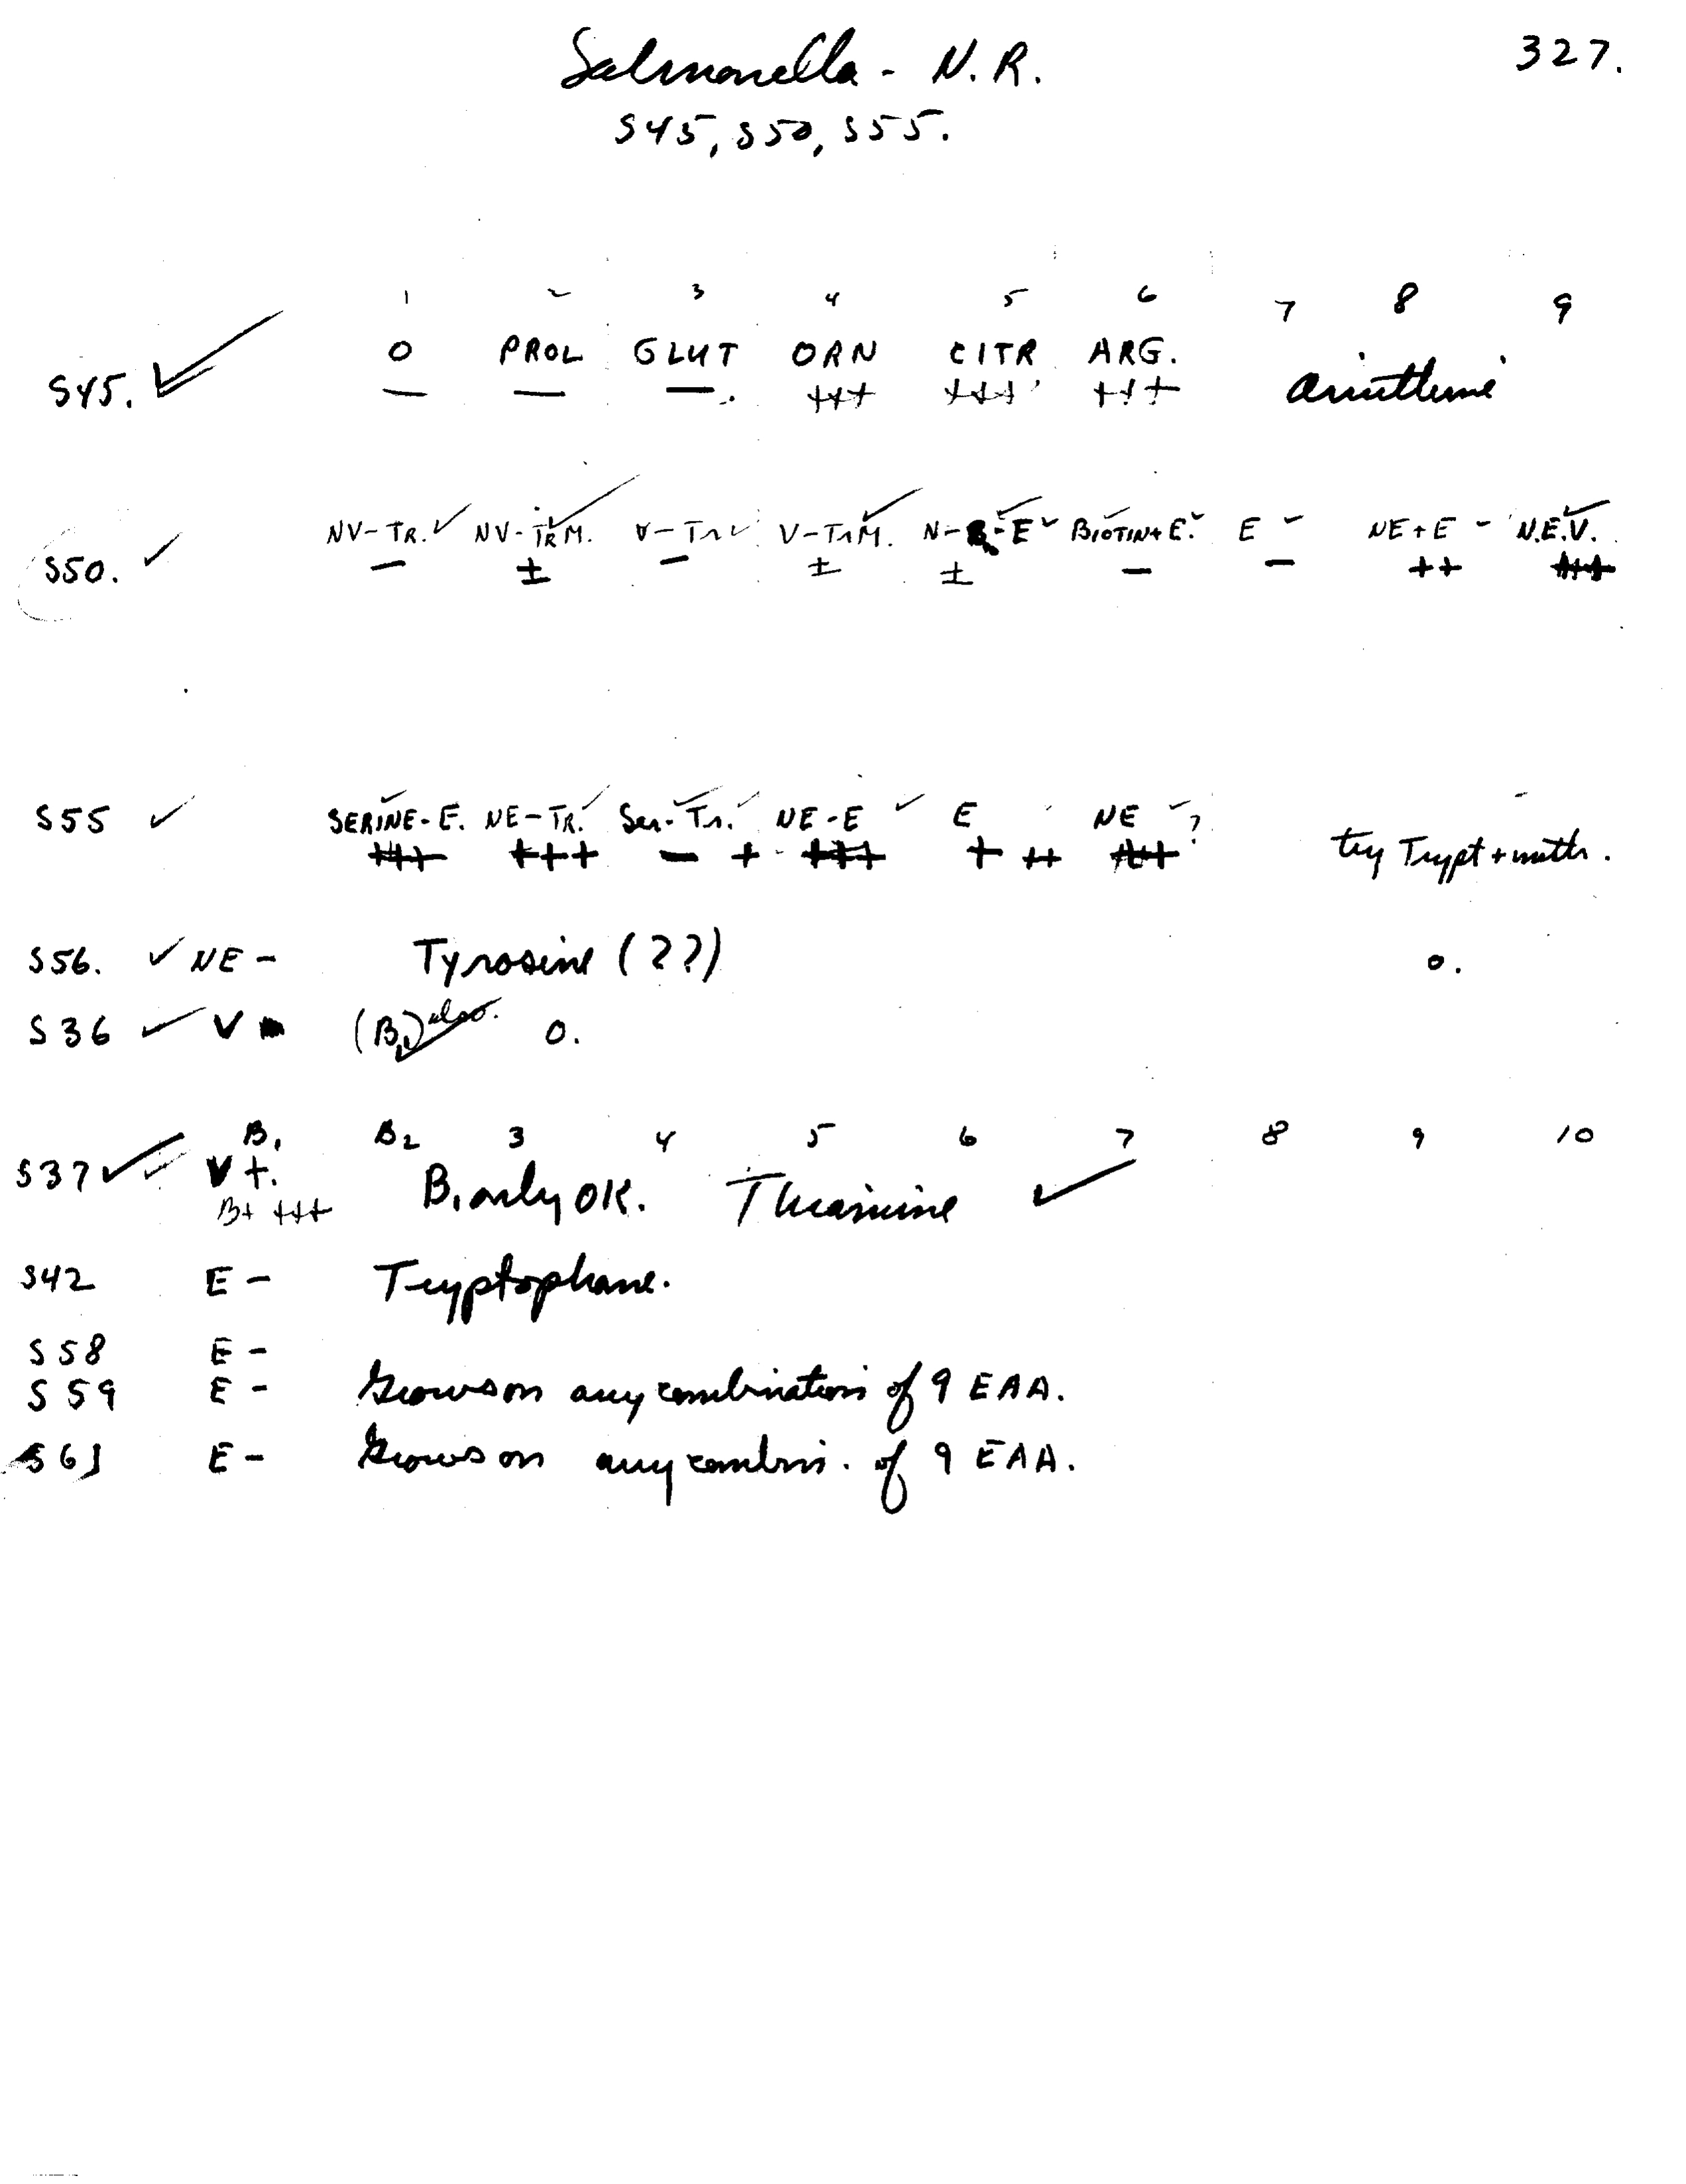 Salmonella - N.R. 327.
S45, S50, S55.
1 2 3 4 5 6 7 8 9
O PROL GLUT ORN CITR ARG.
S45. ✓ — — — +++ +++ +++
NV-TR. ✓ NV-TRM. ✓ V-Tr ✓ V-TrM. ✓ N- -E ✓ BIOTIN+E. ✓ E ✓ NE+E - N.E.V. ✓
S50. ✓ — ± — ± ± — — ++ +++
S55 ✓ SERINE-E. ✓ NE-TR. ✓ Ser-Tr. ✓ NE-E ✓ E NE ?
+++ +++ — + +++ + ++ +++ try Trypt + meth.
S56. ✓ NE - Tyrosine (??) 0.
S36 ✓ V (B1) also. 0.
B1 B2 3 4 5 6 7 8 9 10
S37 ✓ V +. B1 only OK. Thiamine ✓
B+ +++
S42 E - Tryptophane.
S58 E -
S59 E - Grows on any combination of 9 EAA.
S61 E - Grows on any combin. of 9 EAA.